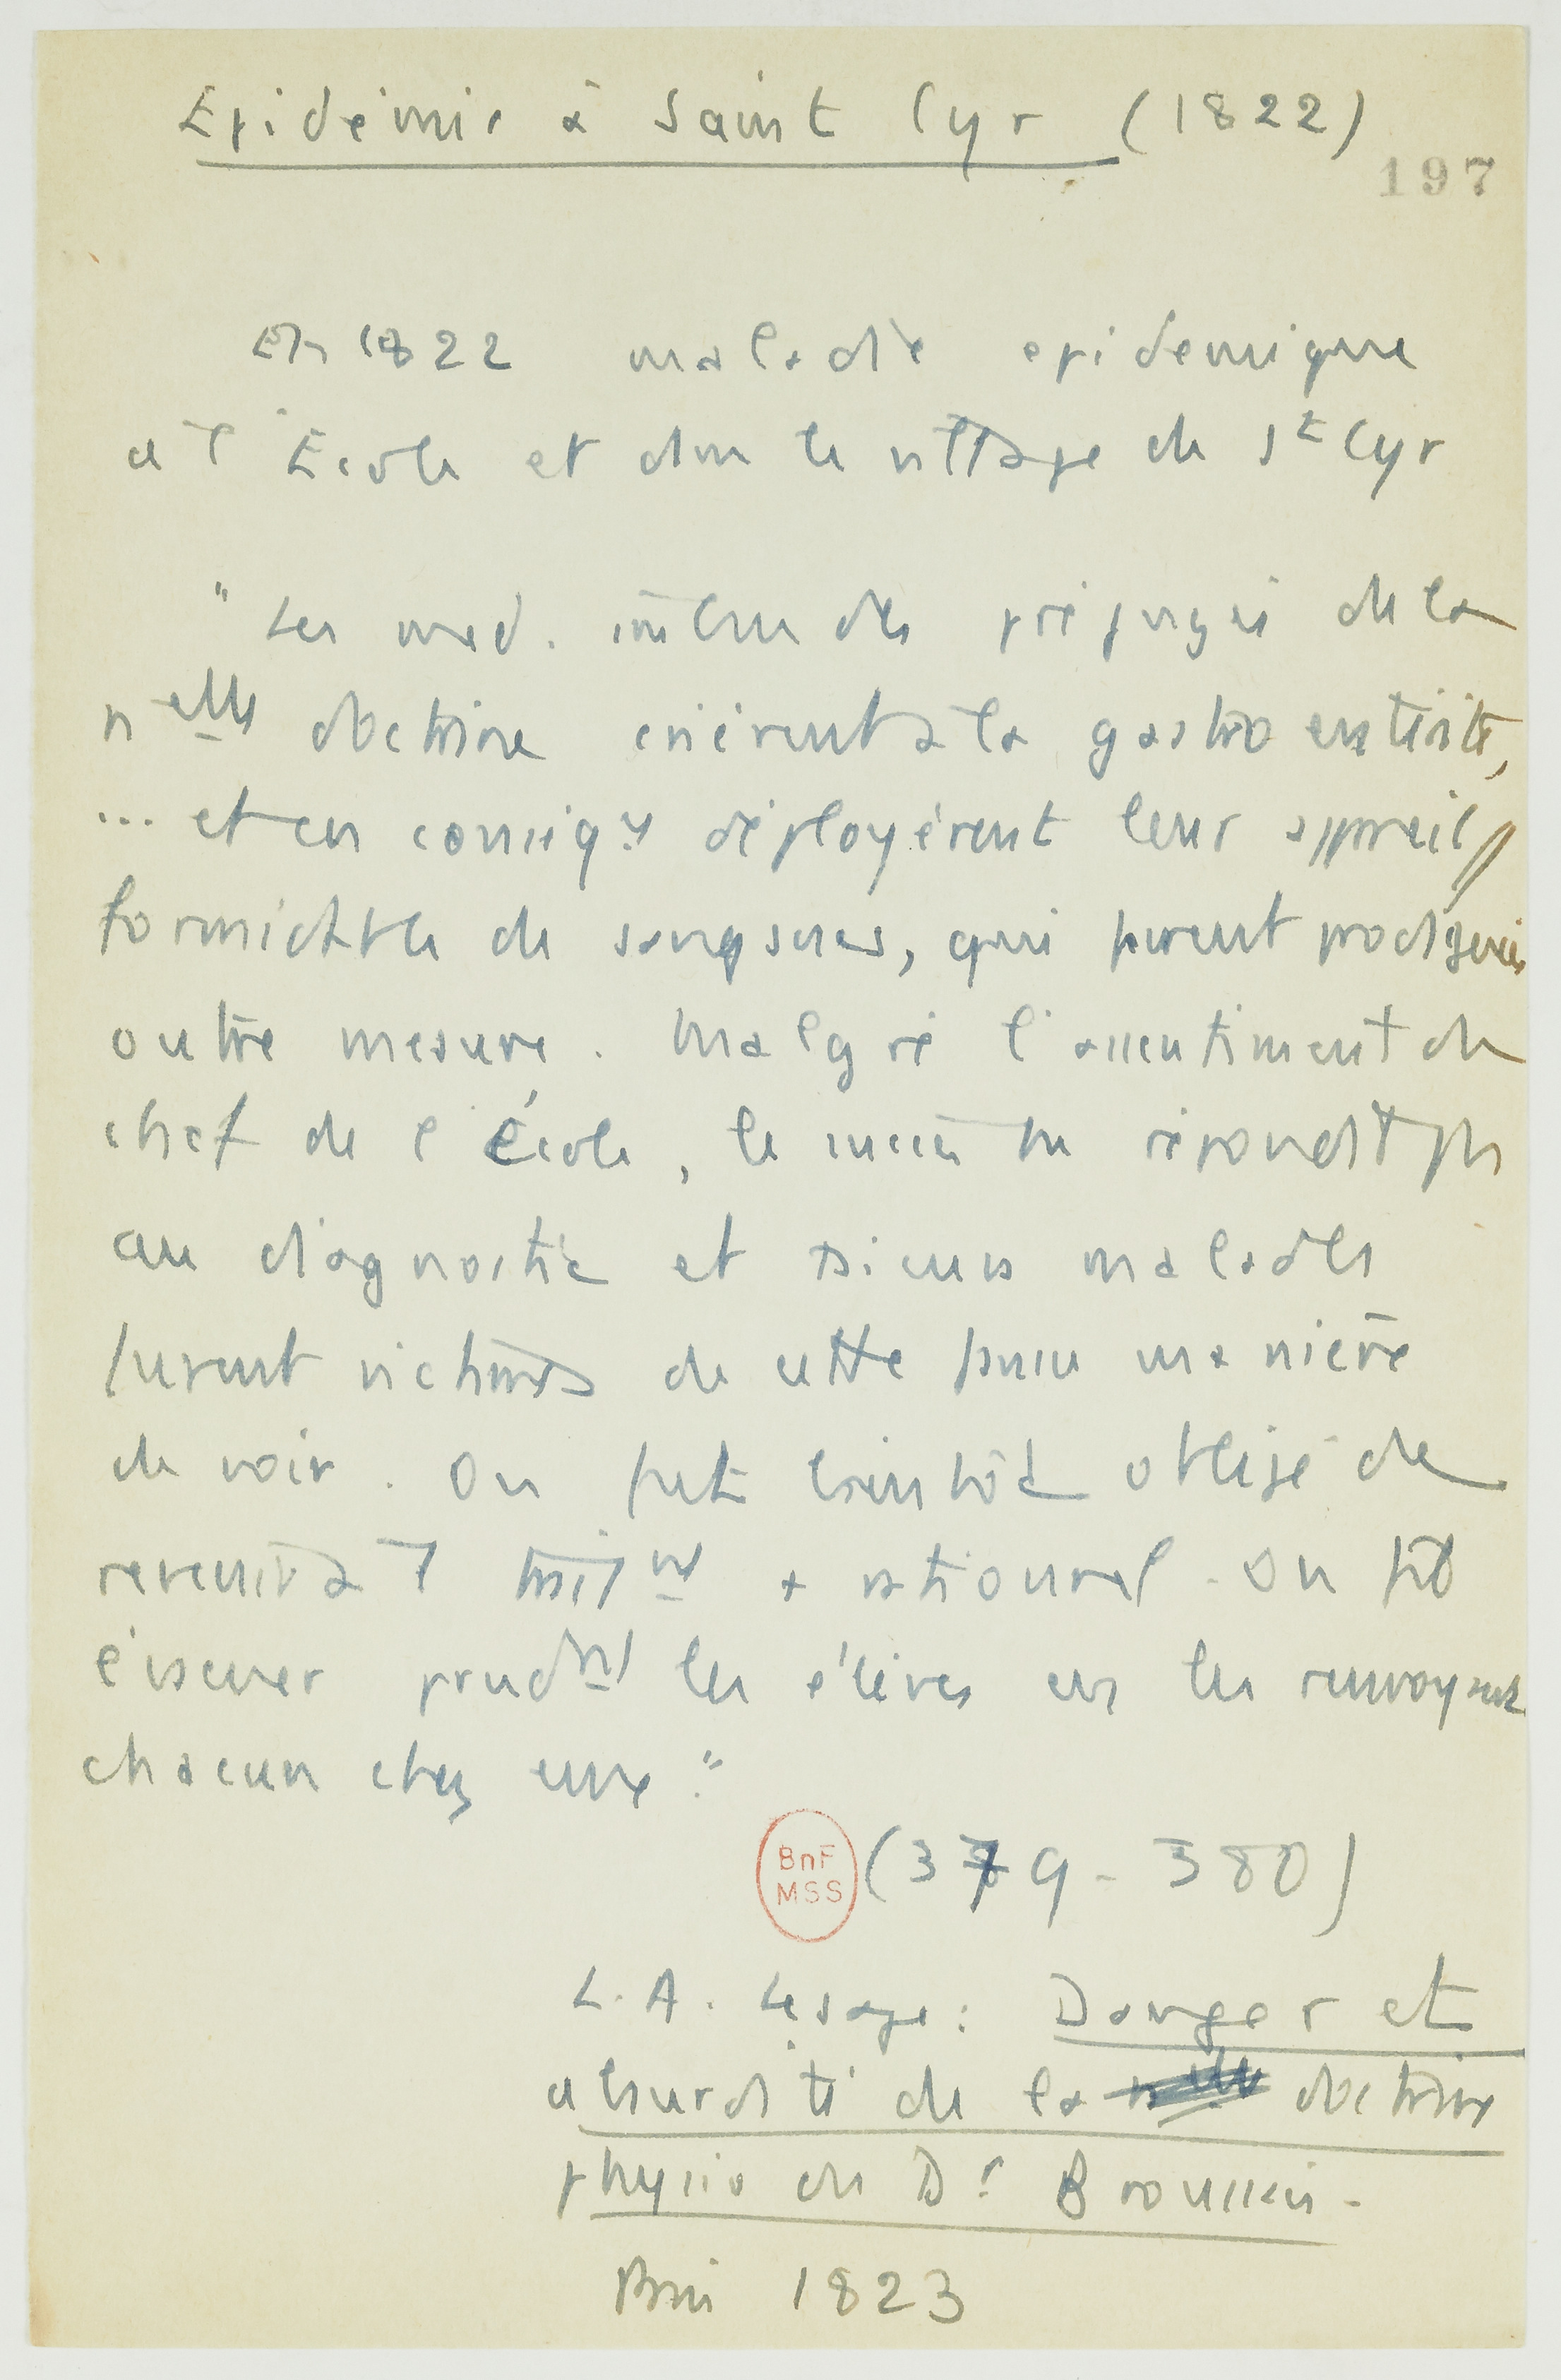 Epidémie à Saint Cyr (1822)
197
En 1822 maladie epidemique
a l'Ecole et dans le village de St Cyr
"Les med. imbus des préjugés de la
nelle doctrine crièrent à la gastro entérite,
... et en conséqu. déployèrent leur appareil
formidable de sangsues, qui furent prodiguées
outre mesure. Malgré l'assentiment du
chef de l'École, le succès ne répondit pas
au diagnostic et plusieurs malades
furent victimes de cette fausse manière
de voir. On fut bientôt obligé de
revenir à 1 trait nt + rationnel. On fit
évacuer prudnt les élèves en les renvoyant
chacun chez eux."
BnF
MSS
(379-380)
L. A. Lesage: Danger et
absurdité de la doctrine
physio du Dr Broussais.
Paris 1823